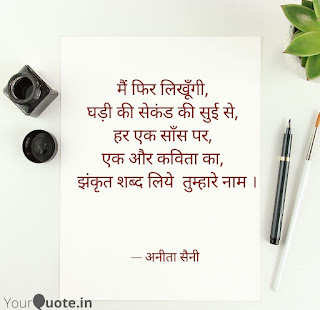 मैं फिर लिखूँगी,
घड़ी की सेकंड की सुई से,
हर एक साँस पर,
एक और कविता का,
झंकृत शब्द लिये तुम्हारे नाम ।
— अनीता सैनी
YourQuote.in